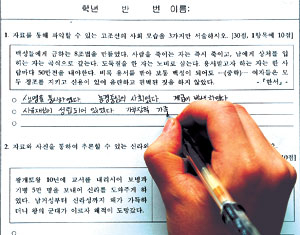 학년 반 번 이름:
1. 자료를 통해 파악할 수 있는 고조선의 사회 모습을 3가지만 서술하시오. [30점, 1항목에 10점]
백성들에게 금하는 8조법을 만들었다. 사람을 죽이는 자는 즉시 죽이고, 남에게 상처를 입
히는 자는 곡식으로 갚는다. 도둑질을 한 자는 노비로 삼는다. 용서받고자 하는 자는 한 사
람마다 50만전을 내야한다. 비록 용서를 받아 보통 백성이 되어도 -(중략)- 여자들은 모
두 정조를 지키고 신용이 있어 음란하고 편벽된 짓을 하지 않았다. 「한서」
○ 생명을 중시하였다 농경중심의 사회였다 계급이
○ 사유재산이 성립되어 있었다 가부장적 가족
2. 자료와 사진을 통하여 추론할 수 있는 신라와
광개토왕 10년에 교서를 내리시어 보병과
기병 5만 명을 보내어 신라를 도와주게 하
였다. 남거성부터 신라성까지 왜가 가득하
더니 왕의 군대가 이르자 왜적이 도망갔다.